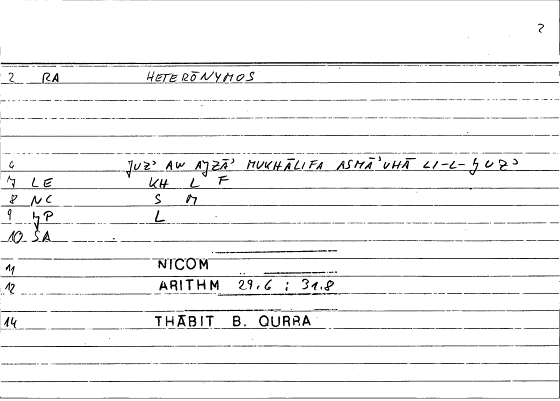 2
2 RA HETERŌNYMOS
6 ǦUZʾ AW AǦZĀʾ MUKHĀLIFA ASMĀʾUHĀ LI-L-ǦUZʾ
7 LE KH L F
8 NC S M
9 ǦP L
10 SA
11 NICOM
12 ARITHM 29.6 ; 31.8
14 THĀBIT B. QURRA